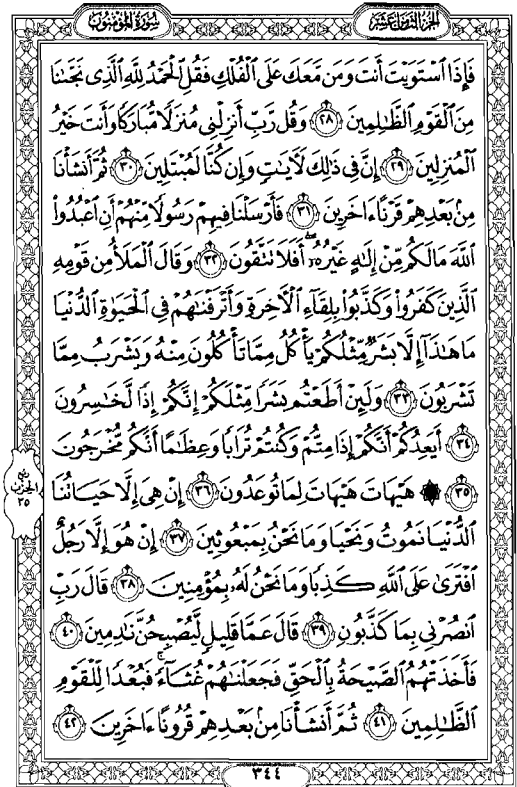 سُورَةُ المُؤْمِنُونَ
الجُزْءُ الثَّامِنَ عَشَرَ
فَإِذَا ٱسْتَوَيْتَ أَنتَ وَمَن مَّعَكَ عَلَى ٱلْفُلْكِ فَقُلِ ٱلْحَمْدُ لِلَّهِ ٱلَّذِى نَجَّىٰنَا
مِنَ ٱلْقَوْمِ ٱلظَّٰلِمِينَ ٢٨ وَقُل رَّبِّ أَنزِلْنِى مُنزَلًا مُّبَارَكًا وَأَنتَ خَيْرُ
ٱلْمُنزِلِينَ ٢٩ إِنَّ فِى ذَٰلِكَ لَءَايَٰتٍ وَإِن كُنَّا لَمُبْتَلِينَ ٣٠ ثُمَّ أَنشَأْنَا
مِنۢ بَعْدِهِمْ قَرْنًا ءَاخَرِينَ ٣١ فَأَرْسَلْنَا فِيهِمْ رَسُولًا مِّنْهُمْ أَنِ ٱعْبُدُوا۟
ٱللَّهَ مَا لَكُم مِّنْ إِلَٰهٍ غَيْرُهُۥٓ أَفَلَا تَتَّقُونَ ٣٢ وَقَالَ ٱلْمَلَأُ مِن قَوْمِهِ
ٱلَّذِينَ كَفَرُوا۟ وَكَذَّبُوا۟ بِلِقَآءِ ٱلْءَاخِرَةِ وَأَتْرَفْنَٰهُمْ فِى ٱلْحَيَوٰةِ ٱلدُّنْيَا
مَا هَٰذَآ إِلَّا بَشَرٌ مِّثْلُكُمْ يَأْكُلُ مِمَّا تَأْكُلُونَ مِنْهُ وَيَشْرَبُ مِمَّا
تَشْرَبُونَ ٣٣ وَلَئِنْ أَطَعْتُم بَشَرًا مِّثْلَكُمْ إِنَّكُمْ إِذًا لَّخَٰسِرُونَ
٣٤ أَيَعِدُكُمْ أَنَّكُمْ إِذَا مِتُّمْ وَكُنتُمْ تُرَابًا وَعِظَٰمًا أَنَّكُم مُّخْرَجُونَ
٣٥ ۞ هَيْهَاتَ هَيْهَاتَ لِمَا تُوعَدُونَ ٣٦ إِنْ هِىَ إِلَّا حَيَاتُنَا
ٱلدُّنْيَا نَمُوتُ وَنَحْيَا وَمَا نَحْنُ بِمَبْعُوثِينَ ٣٧ إِنْ هُوَ إِلَّا رَجُلٌ
ٱفْتَرَىٰ عَلَى ٱللَّهِ كَذِبًا وَمَا نَحْنُ لَهُۥ بِمُؤْمِنِينَ ٣٨ قَالَ رَبِّ
ٱنصُرْنِى بِمَا كَذَّبُونِ ٣٩ قَالَ عَمَّا قَلِيلٍ لَّيُصْبِحُنَّ نَٰدِمِينَ ٤٠
فَأَخَذَتْهُمُ ٱلصَّيْحَةُ بِٱلْحَقِّ فَجَعَلْنَٰهُمْ غُثَآءً فَبُعْدًا لِّلْقَوْمِ
ٱلظَّٰلِمِينَ ٤١ ثُمَّ أَنشَأْنَا مِنۢ بَعْدِهِمْ قُرُونًا ءَاخَرِينَ ٤٢
ربع
الحزب
٣٥
٣٤٤